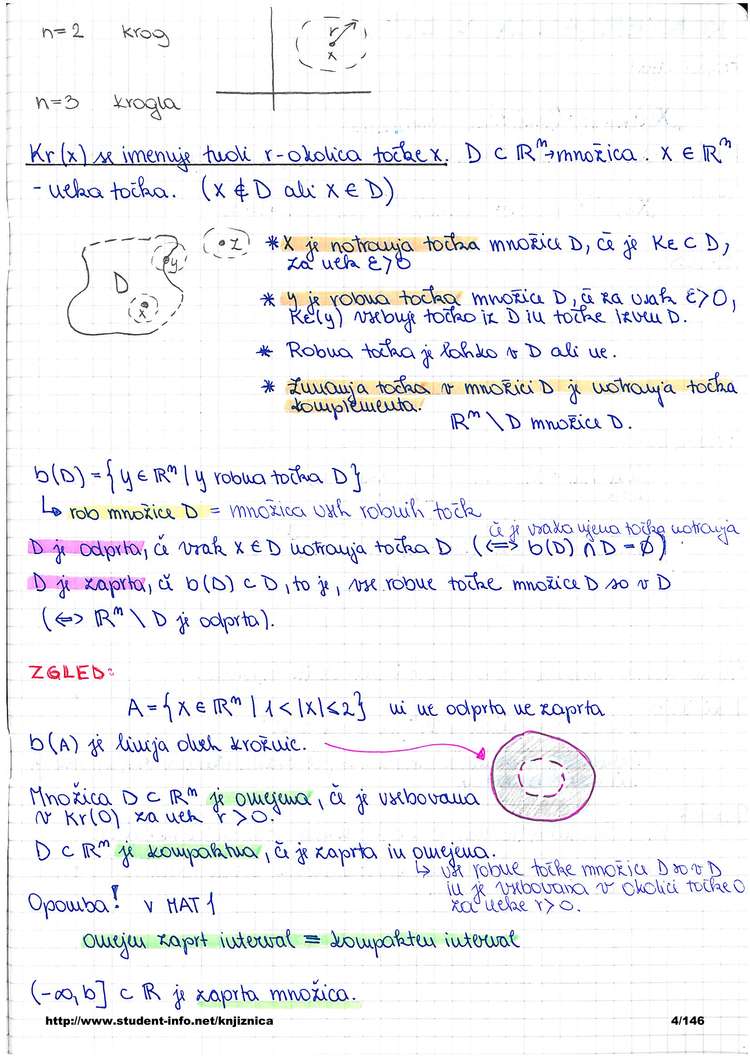 n=2 krog
r
x
n=3 krogla
Kr(x) se imenuje tudi r-okolica točke x. D ⊂ ℝⁿ→množica. x ∈ ℝⁿ
- neka točka. (x ∉ D ali x ∈ D)
D
y
x
z
* x je notranja točka množice D, če je Kε ⊂ D,
za nek ε>0
* y je robna točka množice D, če za vsak ε>0,
Kε(y) vsebuje točko iz D in točke izven D.
* Robna točka je lahko v D ali ne.
* Zunanja točka v množici D je notranja točka
komplementa. ℝⁿ \ D množice D.
b(D) = {y ∈ ℝⁿ | y robna točka D}
↳ rob množice D = množica vseh robnih točk
če je vsaka njena točka notranja
D je odprta, če vsak x ∈ D notranja točka D (⟺ b(D) ∩ D = ∅)
D je zaprta, če b(D) ⊂ D, to je, vse robne točke množice D so v D
(⟺ ℝⁿ \ D je odprta).
ZGLED:
A = {x ∈ ℝⁿ | 1 < |x| ≤ 2} ni ne odprta ne zaprta
b(A) je linija obeh krožnic.
Množica D ⊂ ℝⁿ je omejena, če je vsebovana
v Kr(0) za nek r > 0.
D ⊂ ℝⁿ je kompaktna, če je zaprta in omejena.
↳ vse robne točke množici D so v D
in je vsebovana v okolici točke 0
za neke r>0.
Opomba! v MAT 1
omejen zaprt interval = kompakten interval
(-∞, b] ⊂ ℝ je zaprta množica.
http://www.student-info.net/knjiznica
4/146